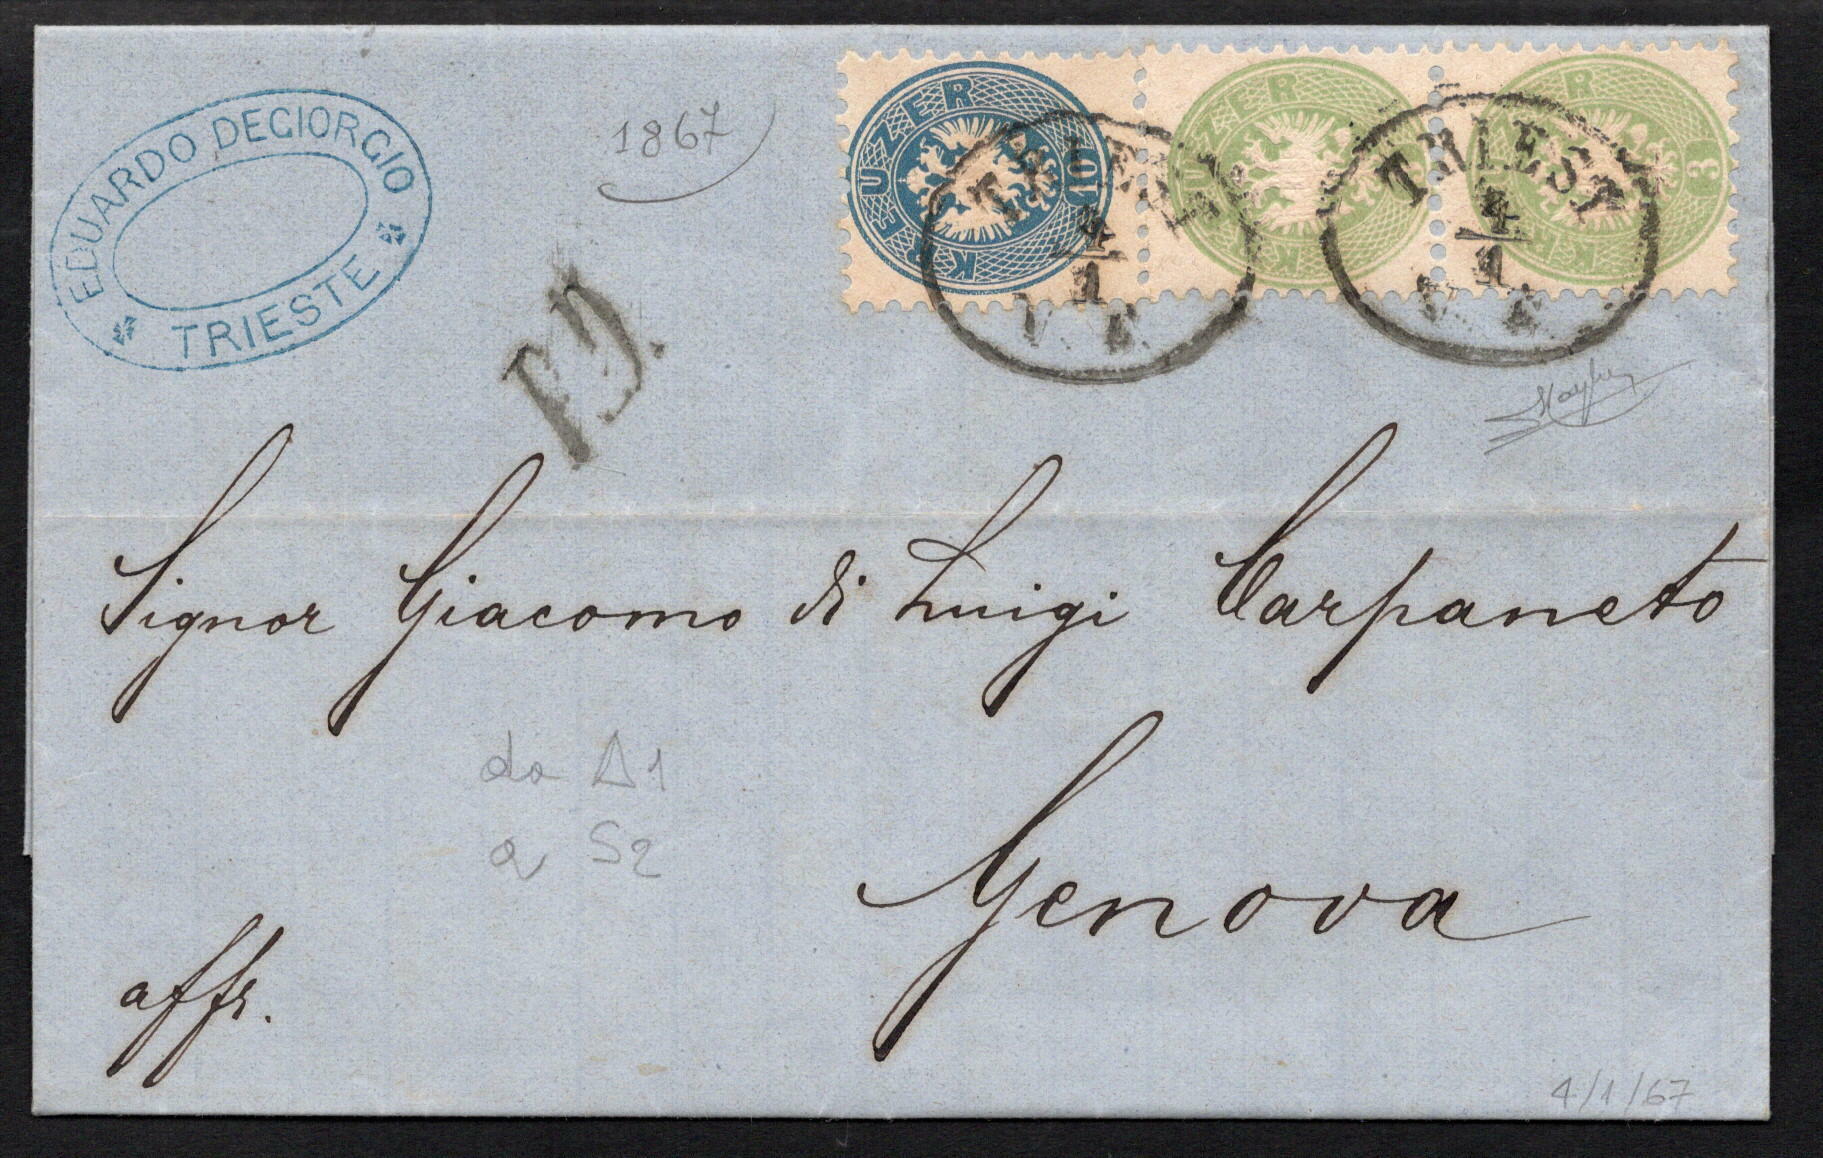 EDUARDO DEGIORGIO
TRIESTE
1867
KREUZER 10
KREUZER
KREUZER 3
TRIEST
4/1
TRIEST
4/1
P.D.
Signor Giacomo di Luigi Carpaneto
Genova
da Δ1
a S2
affr.
4/1/67